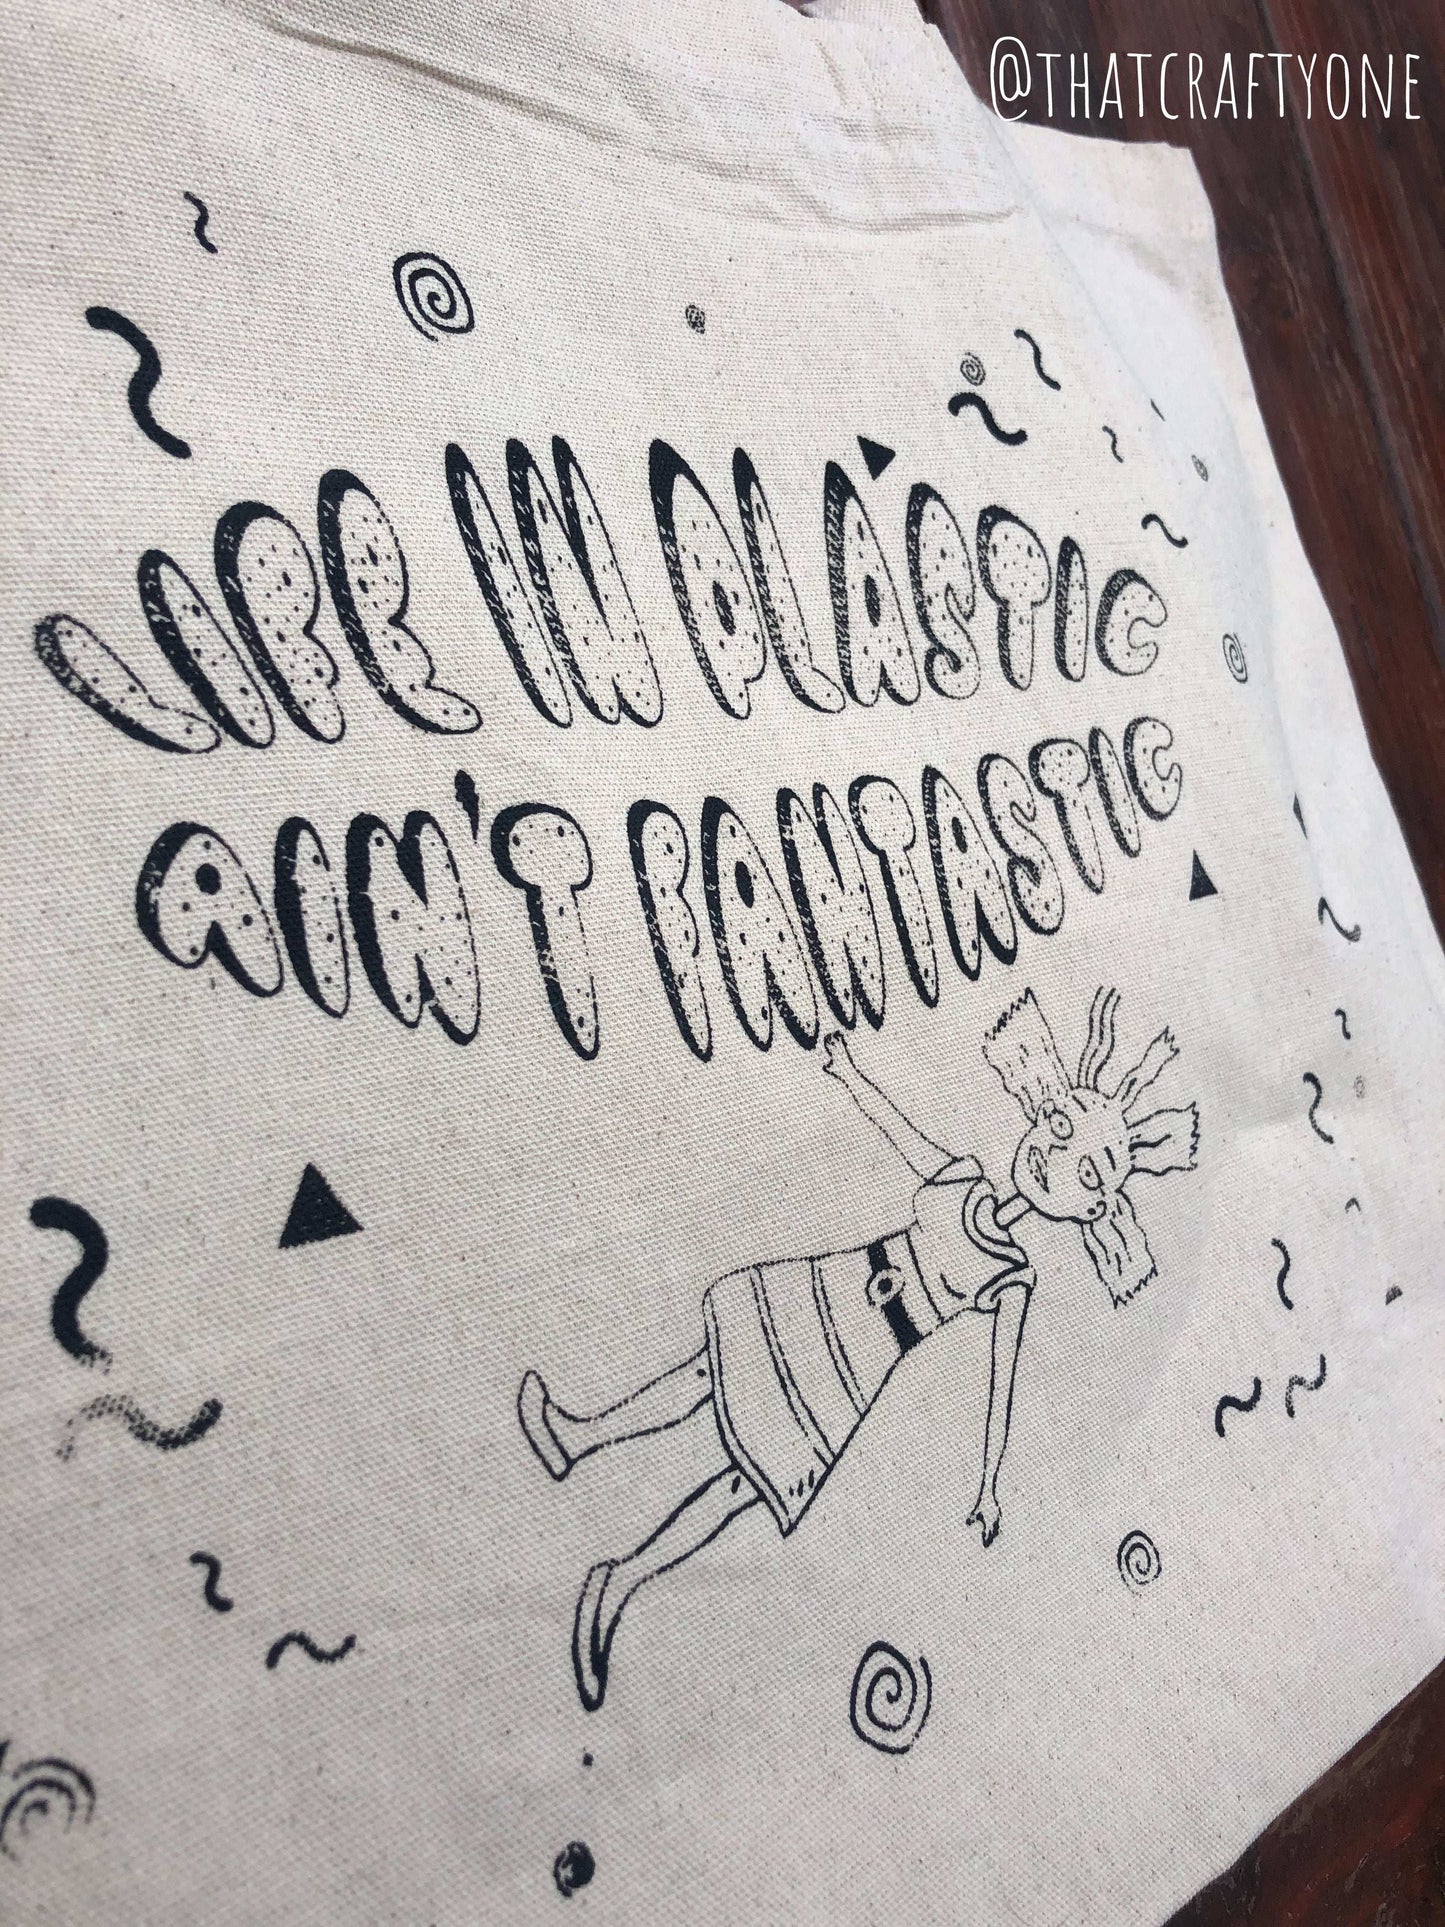 @THATCRAFTYONE
LIFE IN PLASTIC
AIN'T FANTASTIC